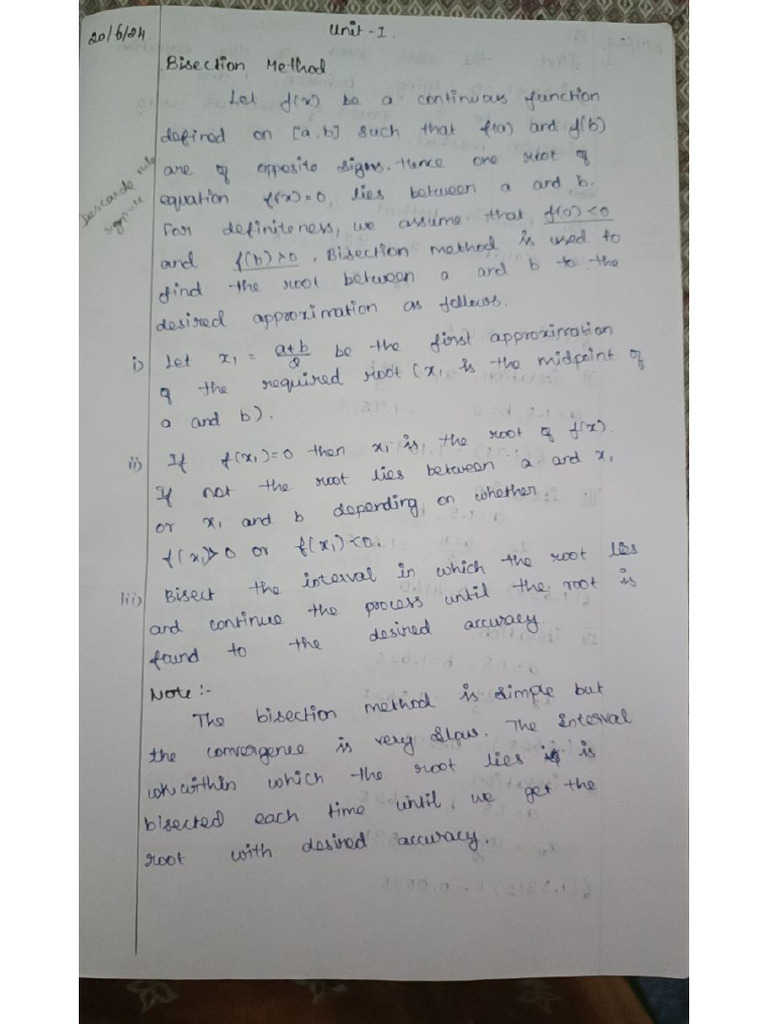 20/6/24
Unit - I.
Bisection Method
Let f(x) be a continuous function
defined on [a,b] such that f(a) and f(b)
are of opposite signs. Hence one root of
equation f(x)=0, lies between a and b.
For definiteness, we assume that f(a)<0
and f(b)>0. Bisection method is used to
find the root between a and b to the
desired approximation as follows.
i) Let x₁ = a+b/2 be the first approximation
of the required root (x₁ is the midpoint of
a and b).
ii) If f(x₁)=0 then x₁ is the root of f(x).
If not the root lies between a and x₁
or x₁ and b depending on whether
f(x₁)>0 or f(x₁)<0.
iii) Bisect the interval in which the root lies
and continue the process until the root is
found to the desired accuracy
Note :-
The bisection method is simple but
the convergence is very slow. The interval
within which the root lies is
bisected each time until, we get the
root with desired accuracy.
Descarde rule